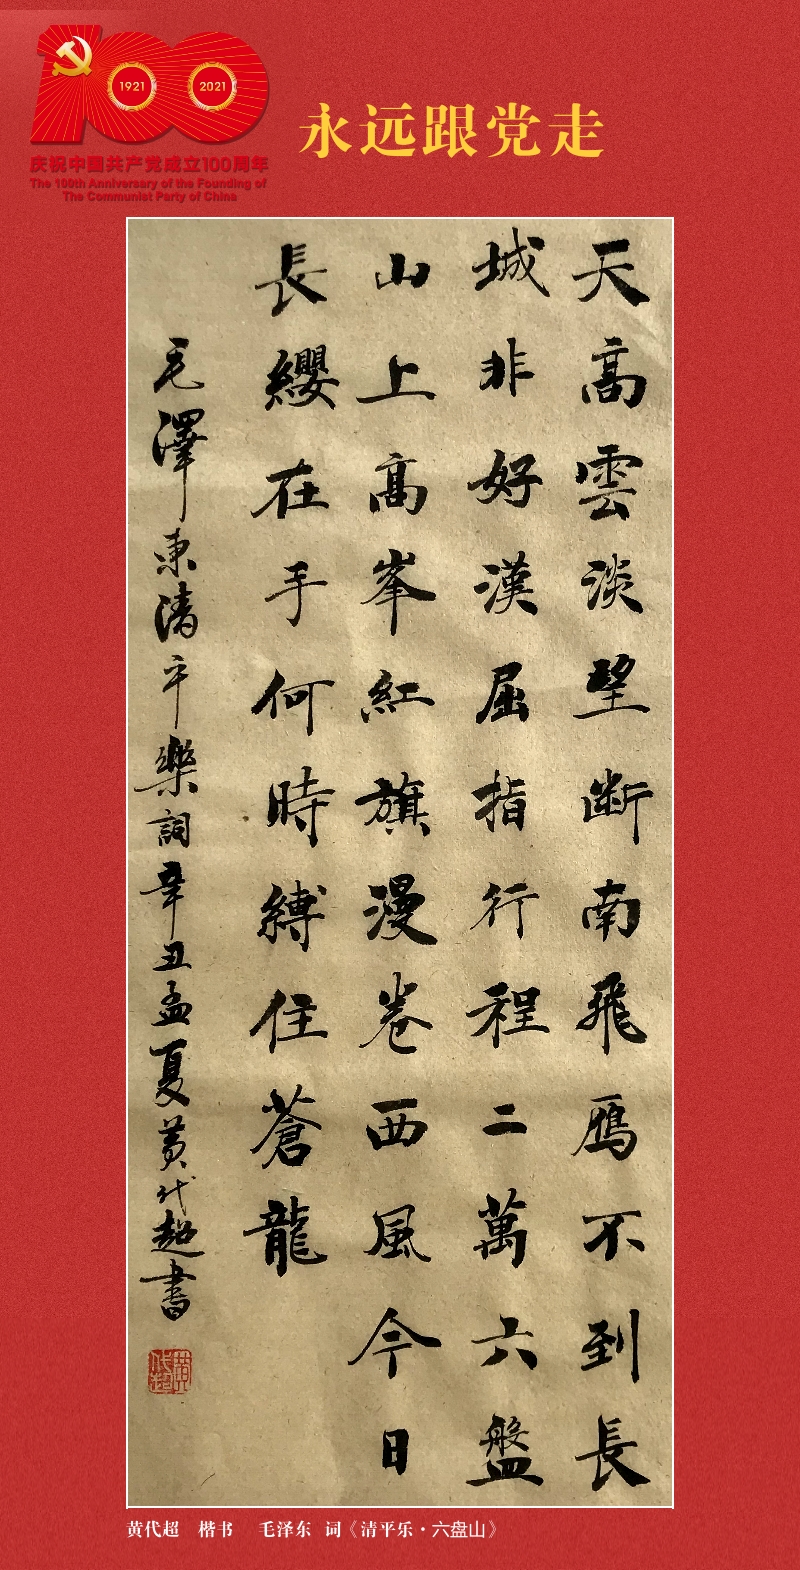 1921
2021
庆祝中国共产党成立100周年
The 100th Anniversary of the Founding of
The Communist Party of China
永远跟党走
天高雲淡望斷南飛鴈不到長
城非好漢屈指行程二萬六盤
山上高峯紅旗漫卷西風今日
長纓在手何時縛住蒼龍
毛澤東清平樂詞辛丑孟夏黃代超書
黄代超 楷书 毛泽东 词《清平乐·六盘山》